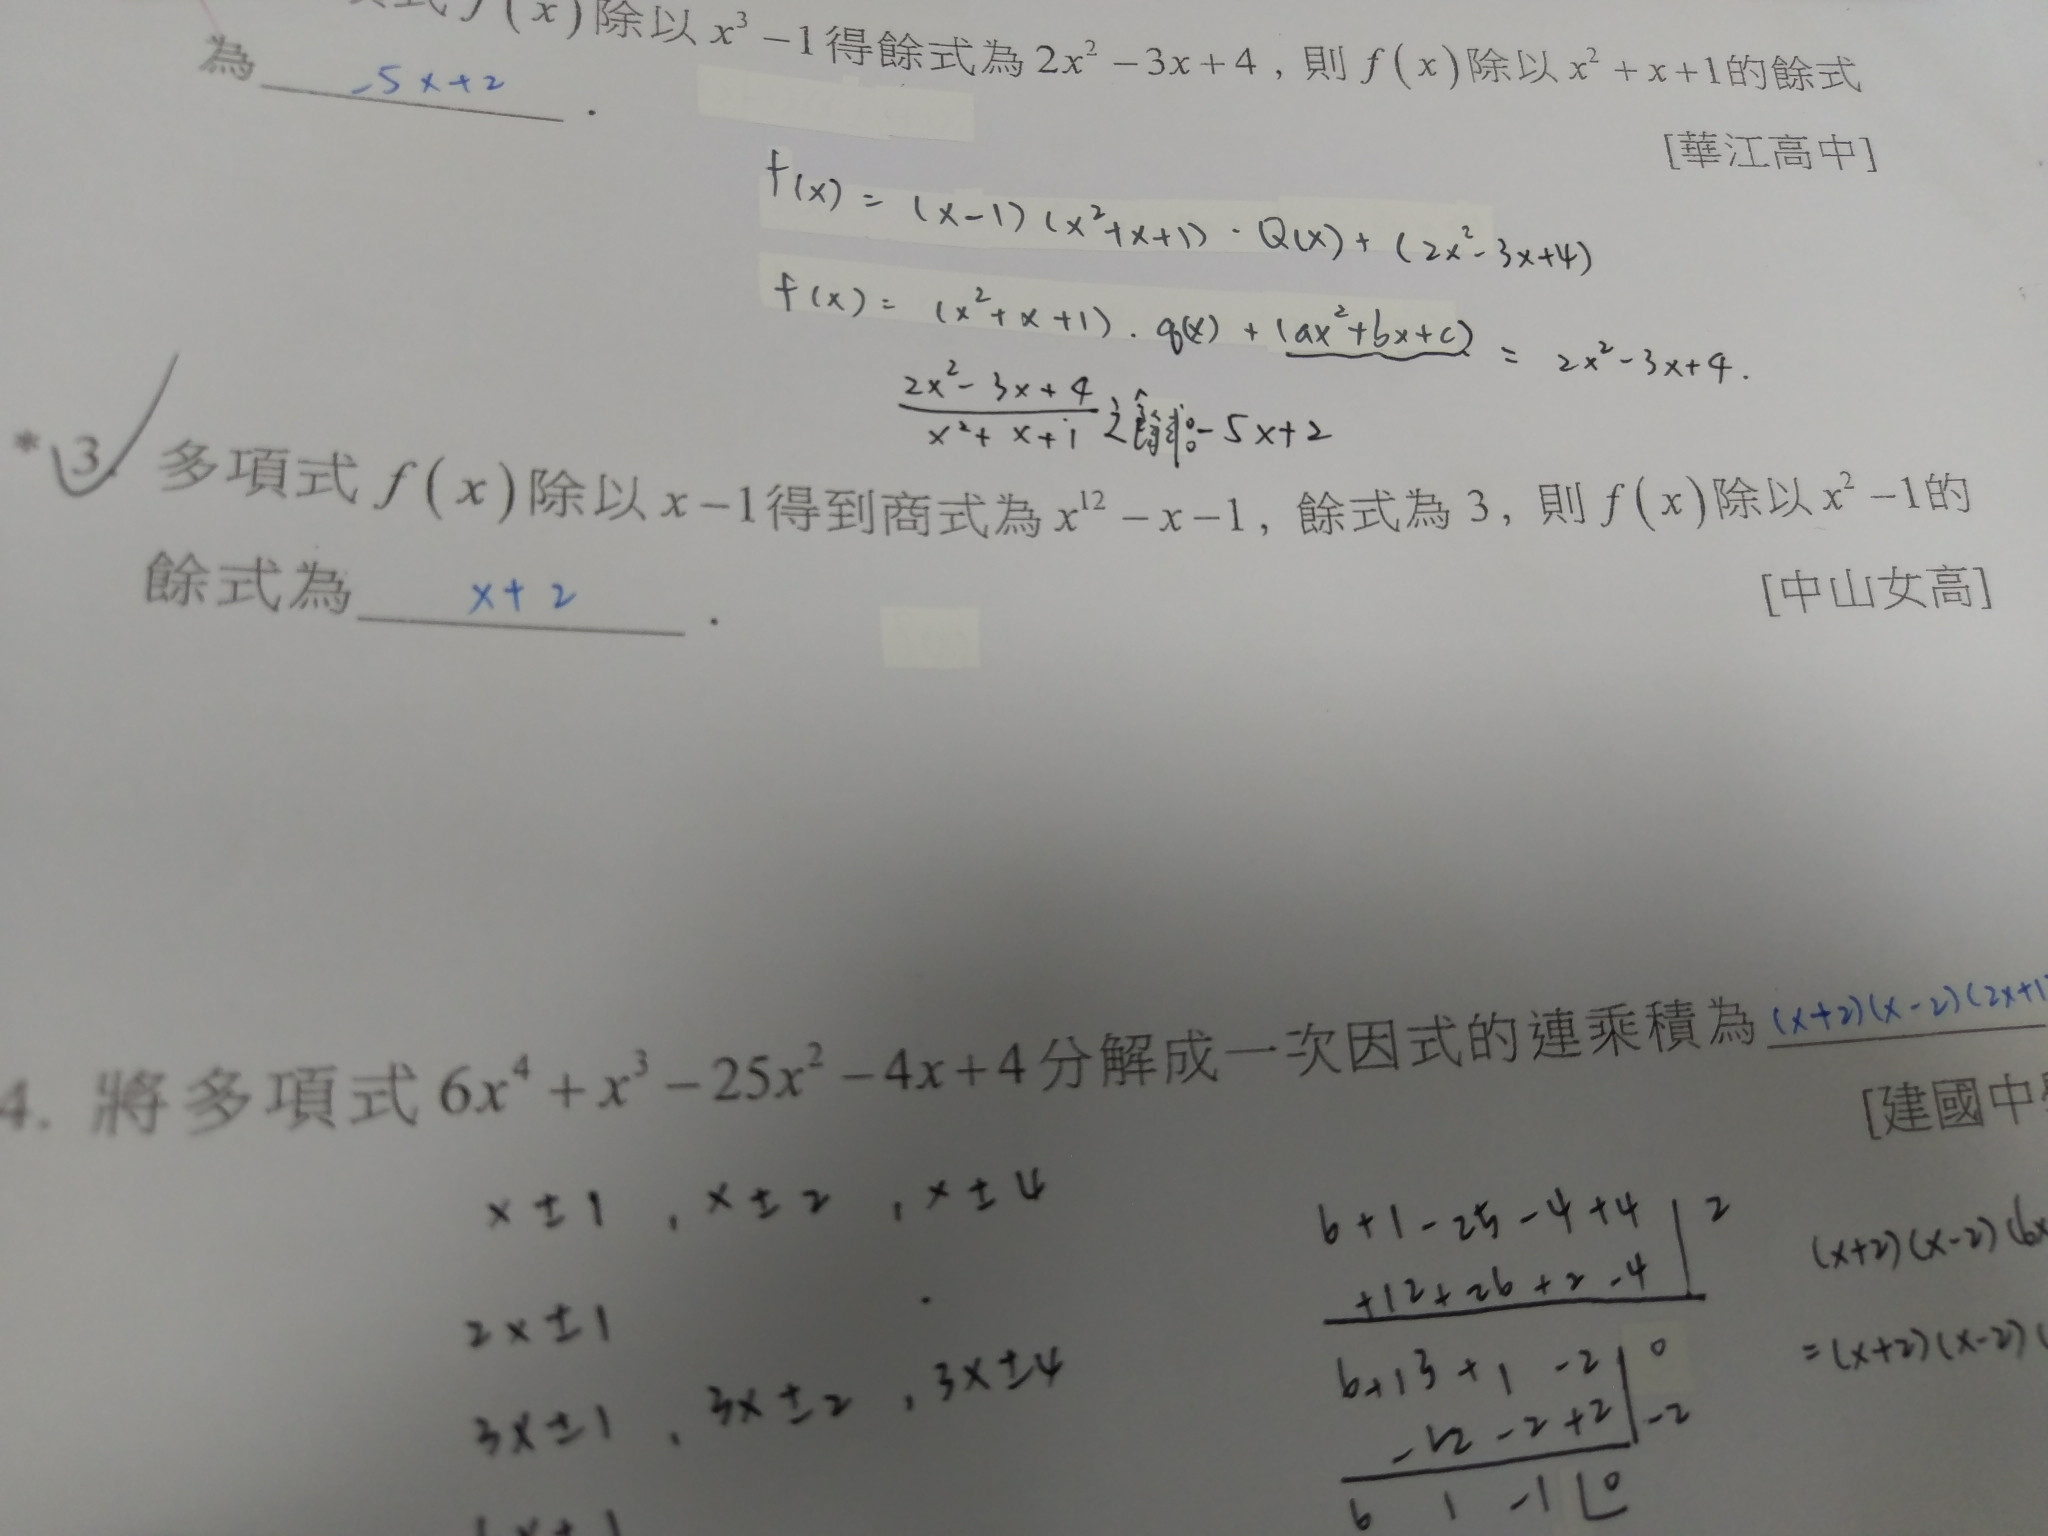 f(x)除以 x³−1得餘式為 2x²−3x+4，則 f(x)除以 x²+x+1的餘式
為 −5x+2 .
[華江高中]
f(x) = (x−1)(x²+x+1)·Q(x)+(2x²−3x+4)
f(x) = (x²+x+1)·q(x)+(ax²+bx+c) = 2x²−3x+4.
2x²−3x+4
x²+x+1 之餘:−5x+2
*3. 多項式 f(x)除以 x−1得到商式為 x¹²−x−1，餘式為 3，則 f(x)除以 x²−1的
餘式為 x+2 .
[中山女高]
4. 將多項式 6x⁴+x³−25x²−4x+4分解成一次因式的連乘積為 (x+2)(x−2)(2x+1)
[建國中
x±1 , x±2 , x±4
2x±1
3x±1 , 3x±2 , 3x±4
6+1−25−4+4 | 2
+12+26+2−4
6+13+1−2 | 0
−12−2+2 | −2
6 1 −1 | 0
(x+2)(x−2)(6x
=(x+2)(x−2)(